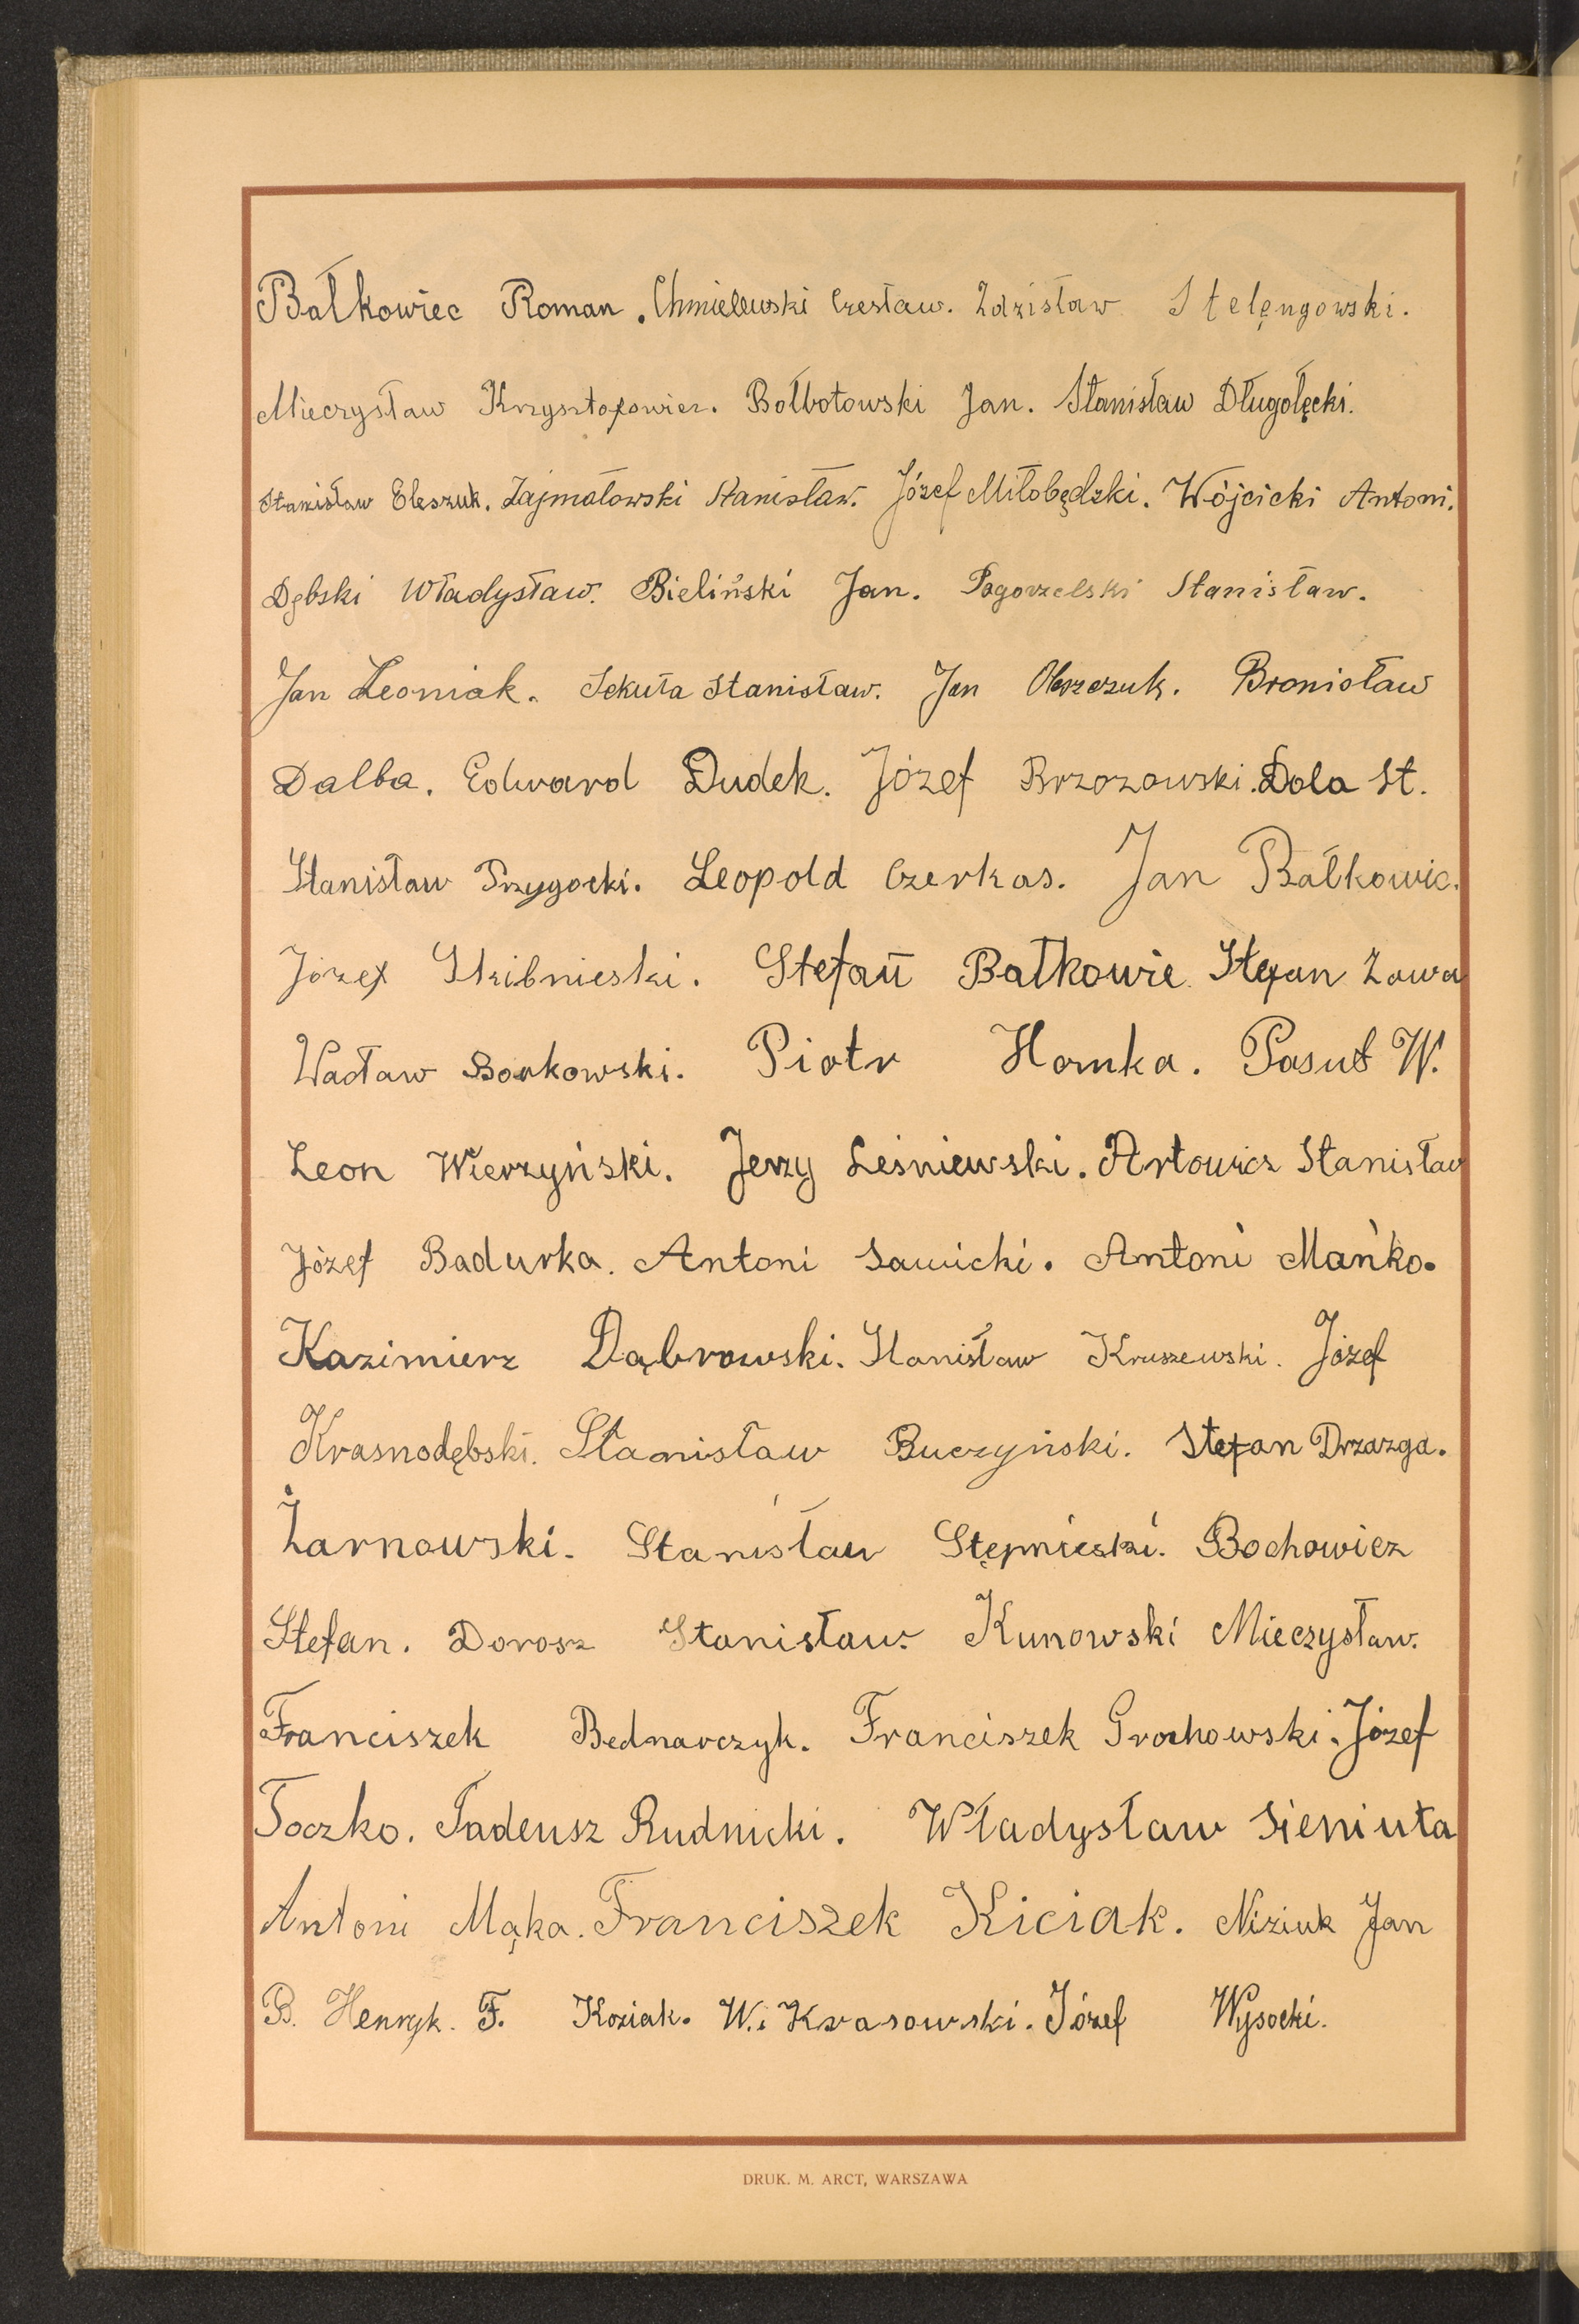 Bałkowiec Roman. Chmielewski Czesław. Zdzisław Stelęngowski.
Mieczysław Krzysztofowicz. Bołbotowski Jan. Stanisław Długołęcki.
Stanisław Eleszuk. Zajmałowski Stanisław. Józef Miłobędzki. Wójcicki Antoni.
Dębski Władysław. Bieliński Jan. Pogorzelski Stanisław.
Jan Leoniak. Sekuła Stanisław. Jan Bronisław
Dalba. Edward Dudek. Józef Brzozowski. Dola St.
Stanisław Przygocki. Leopold Czerkas. Jan Bałkowic.
Józef Skibnieski. Stefan Bałkowie. Stefan Zawa
Wacław Borkowski. Piotr Homka. Pasut W.
Leon Wierzyński. Jerzy Leśniewski. Artowicz Stanisław
Józef Badurka. Antoni Sawicki. Antoni Mańko.
Kazimierz Dąbrowski. Stanisław Kruszewski. Józef
Krasnodębski. Stanisław Buczyński. Stefan Drzazga.
Żarnowski. Stanisław Stępnieski. Bochowicz
Stefan. Dorosz Stanisław. Kunowski Mieczysław.
Franciszek Bednarczyk. Franciszek Grochowski. Józef
Toczko. Tadeusz Rudnicki. Władysław Sieniuta
Antoni Mąka. Franciszek Kiciak. Niziuk Jan
B. Henryk. F. Koziak. W. Krasowski. Józef Wysocki.
DRUK. M. ARCT, WARSZAWA